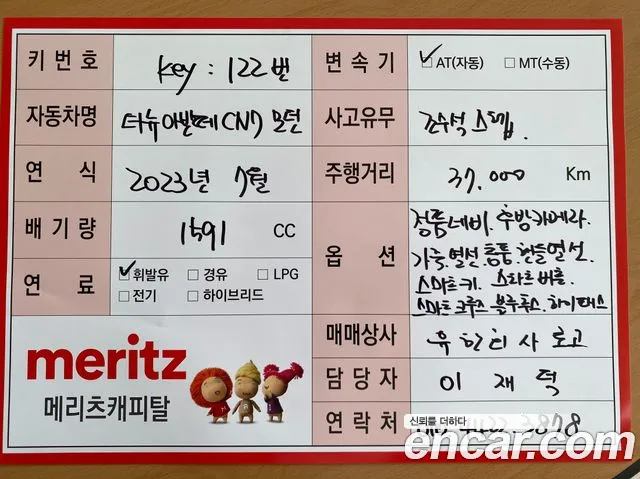 키번호 Key : 122번
변속기 ✓□AT(자동) □MT(수동)
자동차명 더뉴아반떼CN7 모던
사고유무 조수석 스텝.
연식 2023년 7월
주행거리 37.000 Km
배기량 1591 CC
옵션 정품네비. 후방카메라.
가죽.열선.통풍.핸들열선.
스마트키. 스타트버튼.
스마트크루즈 블루투스. 하이패스
연료 ✓□휘발유 □경유 □LPG
□전기 □하이브리드
meritz
메리츠캐피탈
매매상사
담당자 이재덕
연락처 3878
신뢰를 더하다
encar.com